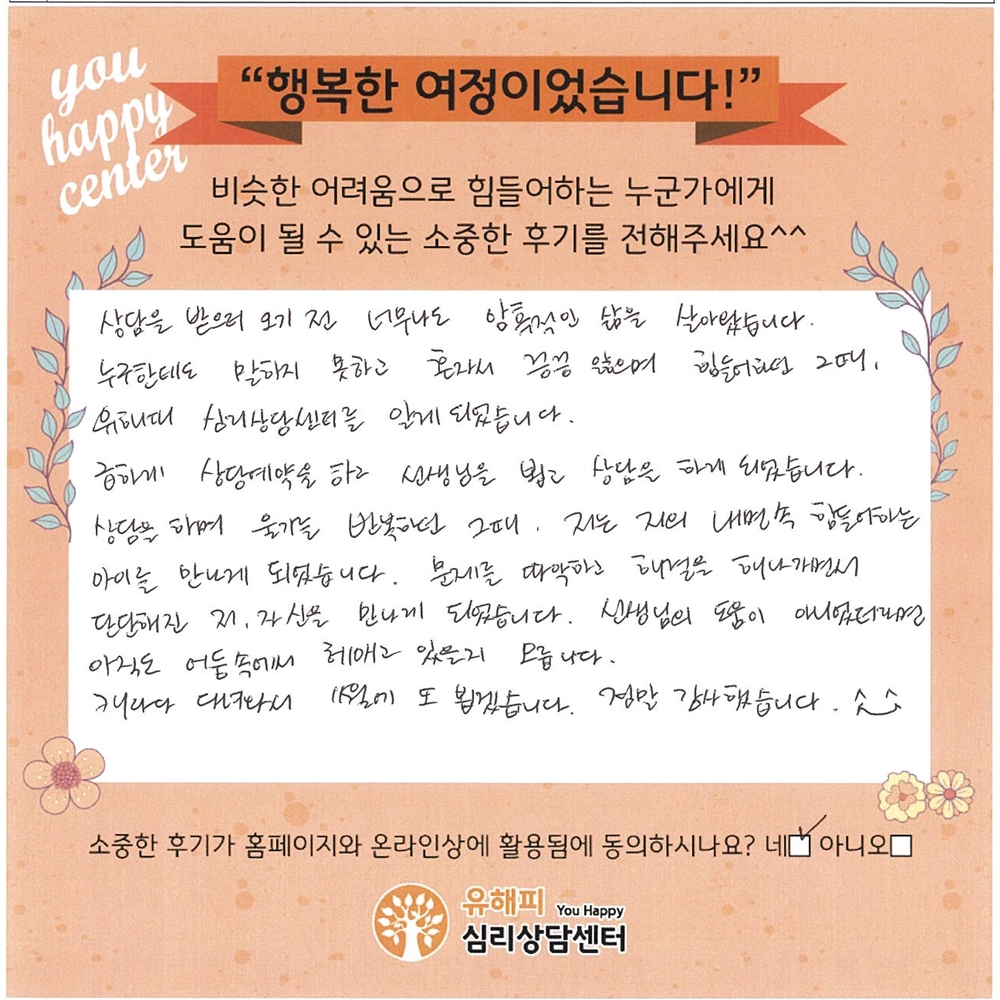 you
happy
center
“행복한 여정이었습니다!”
비슷한 어려움으로 힘들어하는 누군가에게
도움이 될 수 있는 소중한 후기를 전해주세요^^
상담을 받으러 오기 전 너무나도 암흑적인 삶을 살아왔습니다.
누구한테도 말하지 못하고 혼자서 끙끙 앓으며 힘들어하던 그때,
유해피 심리상담센터를 알게 되었습니다.
급하게 상담예약을 하고 선생님을 뵙고 상담을 하게 되었습니다.
상담을 하며 울기를 반복하던 그때, 저는 저의 내면속 힘들어하는
아이를 만나게 되었습니다. 문제를 파악하고 해결을 해나가면서
단단해진 저, 자신을 만나게 되었습니다. 선생님의 도움이 아니었더라면
아직도 어둠속에서 헤매고 있을지 모릅니다.
캐나다 다녀와서 에 또 뵙겠습니다. 정말 감사했습니다. ^_^
소중한 후기가 홈페이지와 온라인상에 활용됨에 동의하시나요? 네 아니오
유해피 You Happy
심리상담센터